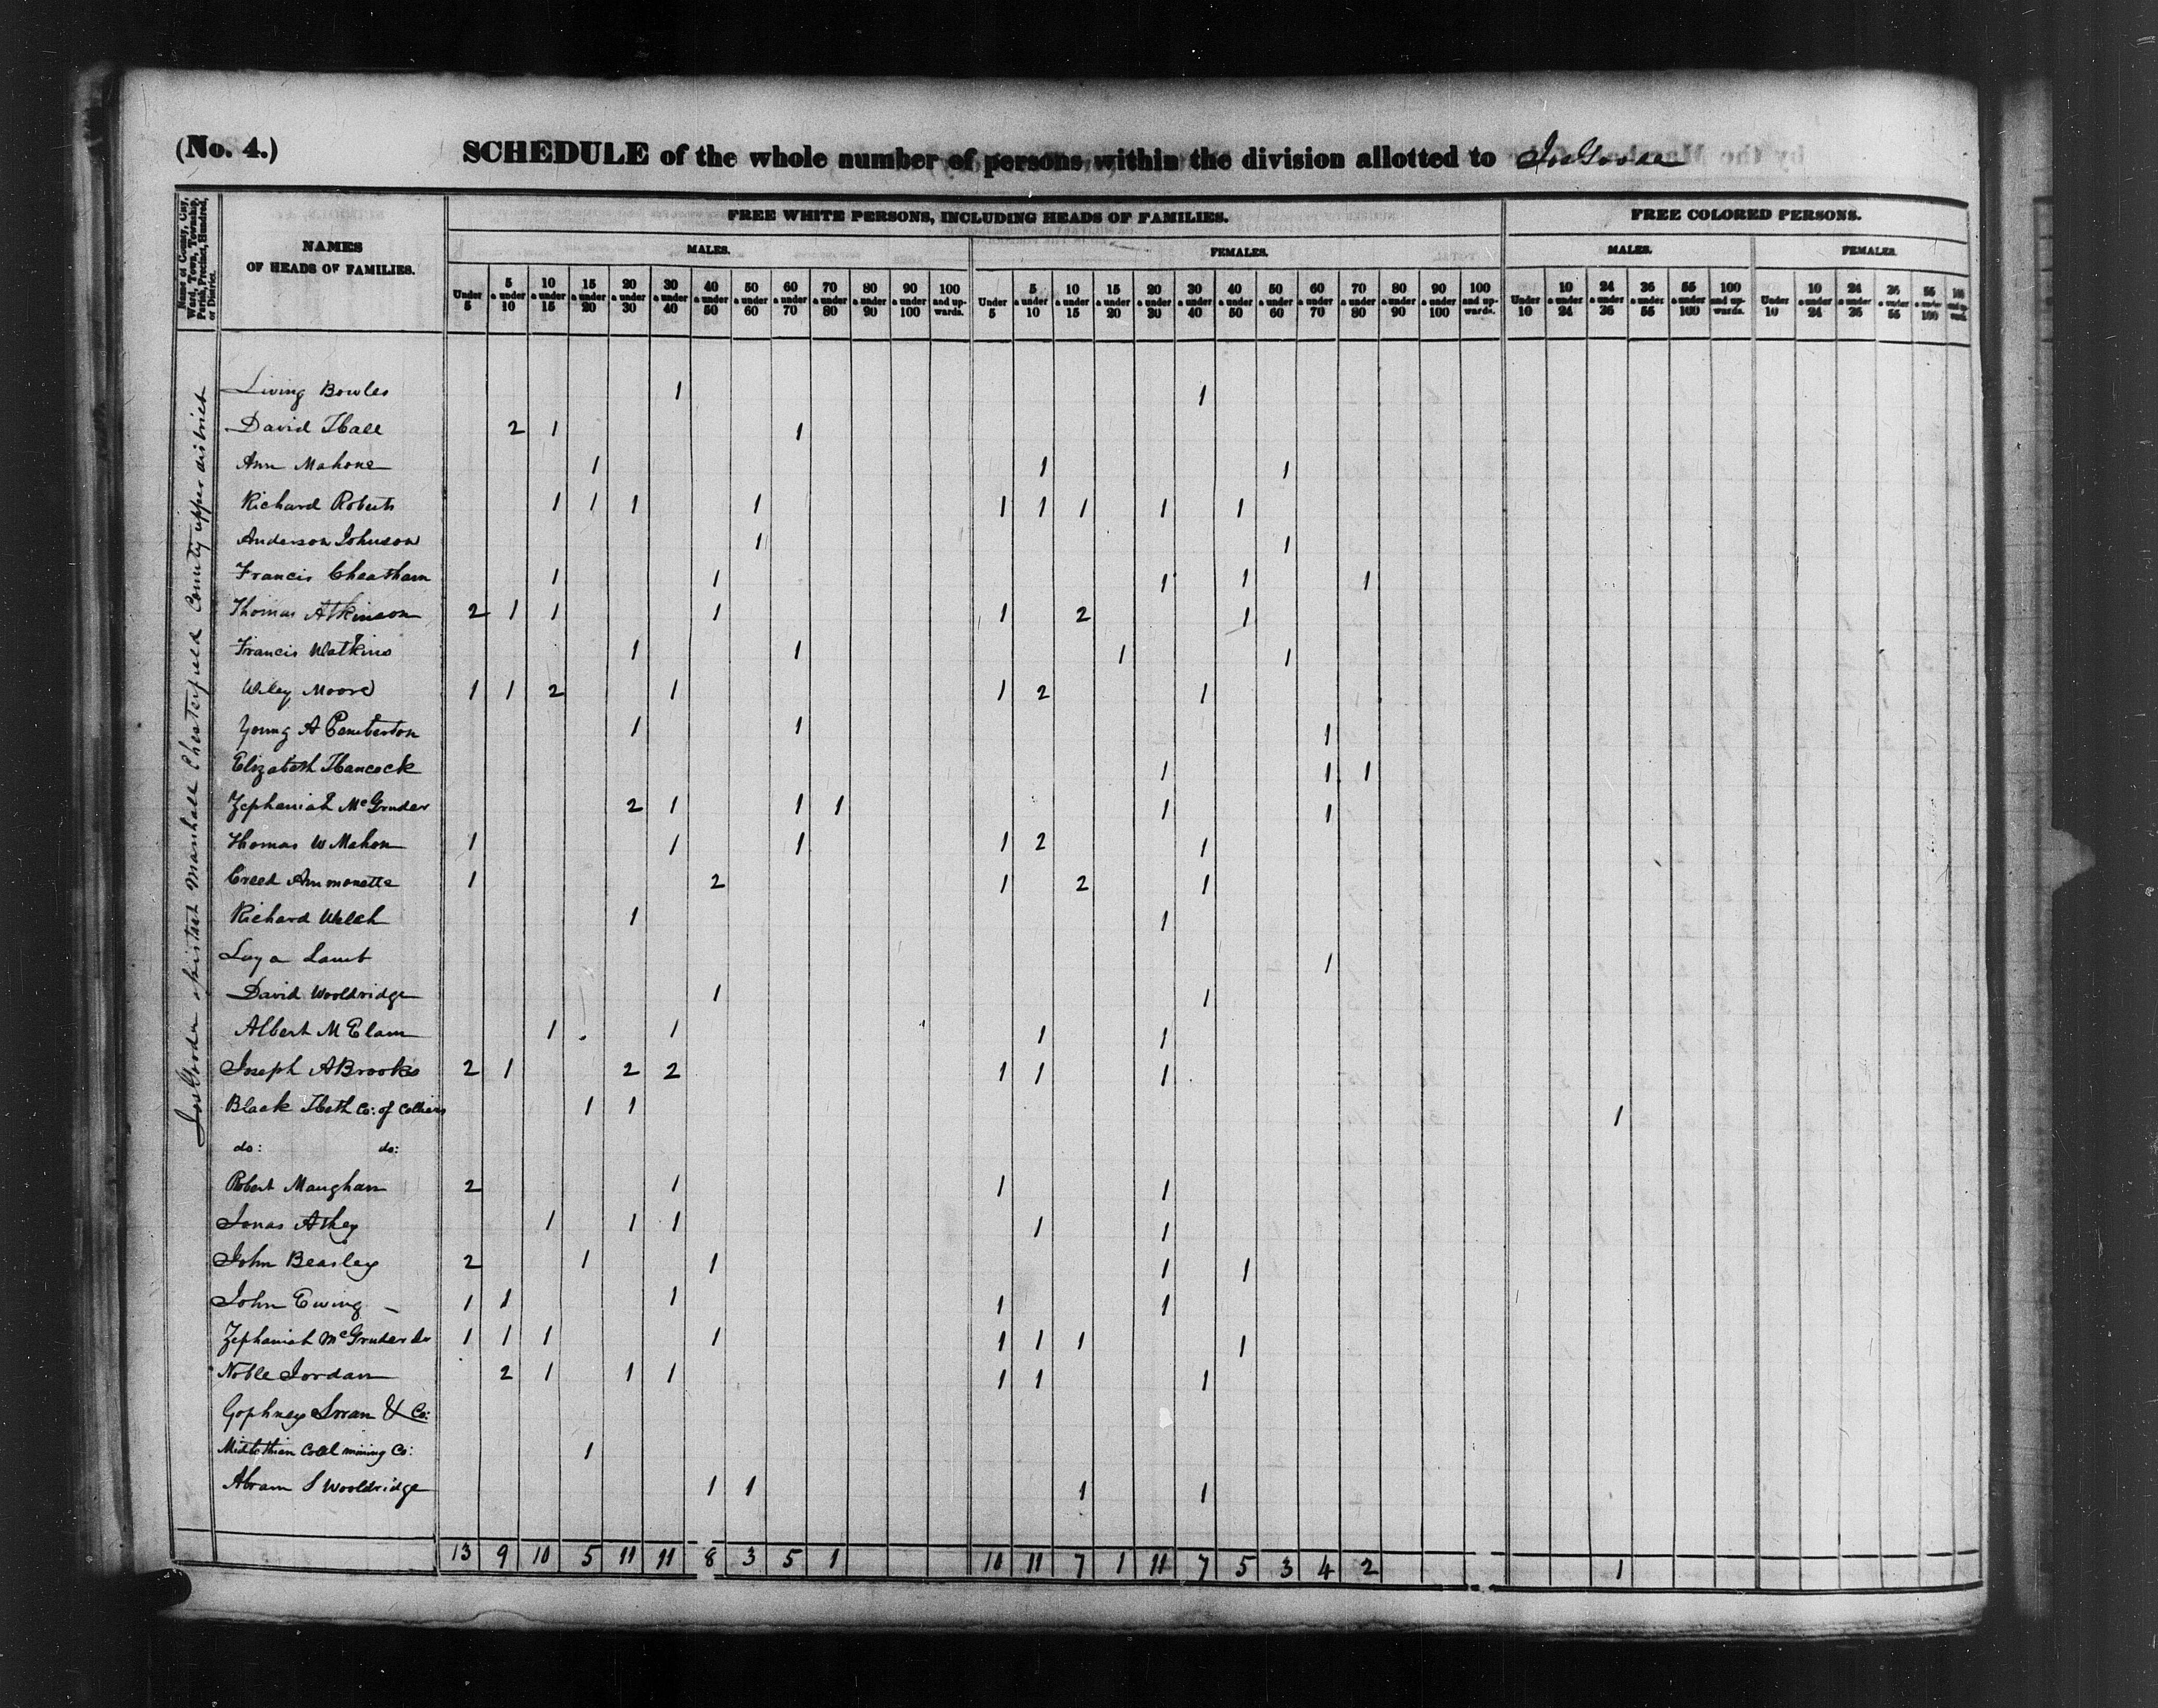 (No. 4.)
SCHEDULE of the whole number of persons within the division allotted to Jos Goode
Name of County, City, Ward, Town, Township, Parish, Precinct, Hundred, or District.
NAMES
OF HEADS OF FAMILIES.
FREE WHITE PERSONS, INCLUDING HEADS OF FAMILIES.
FREE COLORED PERSONS.
MALES. FEMALES. MALES. FEMALES.
Under 5 | 5 & under 10 | 10 & under 15 | 15 & under 20 | 20 & under 30 | 30 & under 40 | 40 & under 50 | 50 & under 60 | 60 & under 70 | 70 & under 80 | 80 & under 90 | 90 & under 100 | 100 and upwards. | Under 5 | 5 & under 10 | 10 & under 15 | 15 & under 20 | 20 & under 30 | 30 & under 40 | 40 & under 50 | 50 & under 60 | 60 & under 70 | 70 & under 80 | 80 & under 90 | 90 & under 100 | 100 and upwards. | Under 10 | 10 & under 24 | 24 & under 36 | 36 & under 55 | 55 & under 100 | 100 and upwards. | Under 10 | 10 & under 24 | 24 & under 36 | 36 & under 55 | 55 & under 100 | 100 and upwards.
Marshall Chesterfield County upper district
Living Bowles 1 1
David Hall 2 1 1
Ann Mahone 1 1 1
Richard Roberts 1 1 1 1 1 1 1 1 1
Anderson Johnson 1 1
Francis Cheatham 1 1 1 1 1
Thomas Atkinson 2 1 1 1 1 2 1
Francis Watkins 1 1 1 1
Wiley Moore 1 1 2 1 1 2 1
Young A Pemberton 1 1 1
Elizabeth Hancock 1 1 1
Zephaniah McGruder 2 1 1 1 1 1
Thomas W Mahon 1 1 1 1 2 1
Creed Ammonette 1 2 1 2 1
Richard Welch 1 1
Lamb 1
David Wooldridge 1 1
Albert M Elam 1 1 1 1
Joseph A Brooks 2 1 2 2 1 1 1
Black Heth Co: of Colliers 1 1 1
do: do:
Robert Maughan 2 1 1 1
Jonas Athey 1 1 1 1 1
John Beasley 2 1 1 1 1
John Ewing – 1 1 1 1 1
Zephaniah McGruder Jr 1 1 1 1 1 1 1 1
Noble Jordan 2 1 1 1 1 1 1
& Co:
Midlothian Coal mining Co: 1
Abram S Wooldridge 1 1 1 1
13 9 10 5 11 11 8 3 5 1 10 11 7 1 11 7 5 3 4 2 1